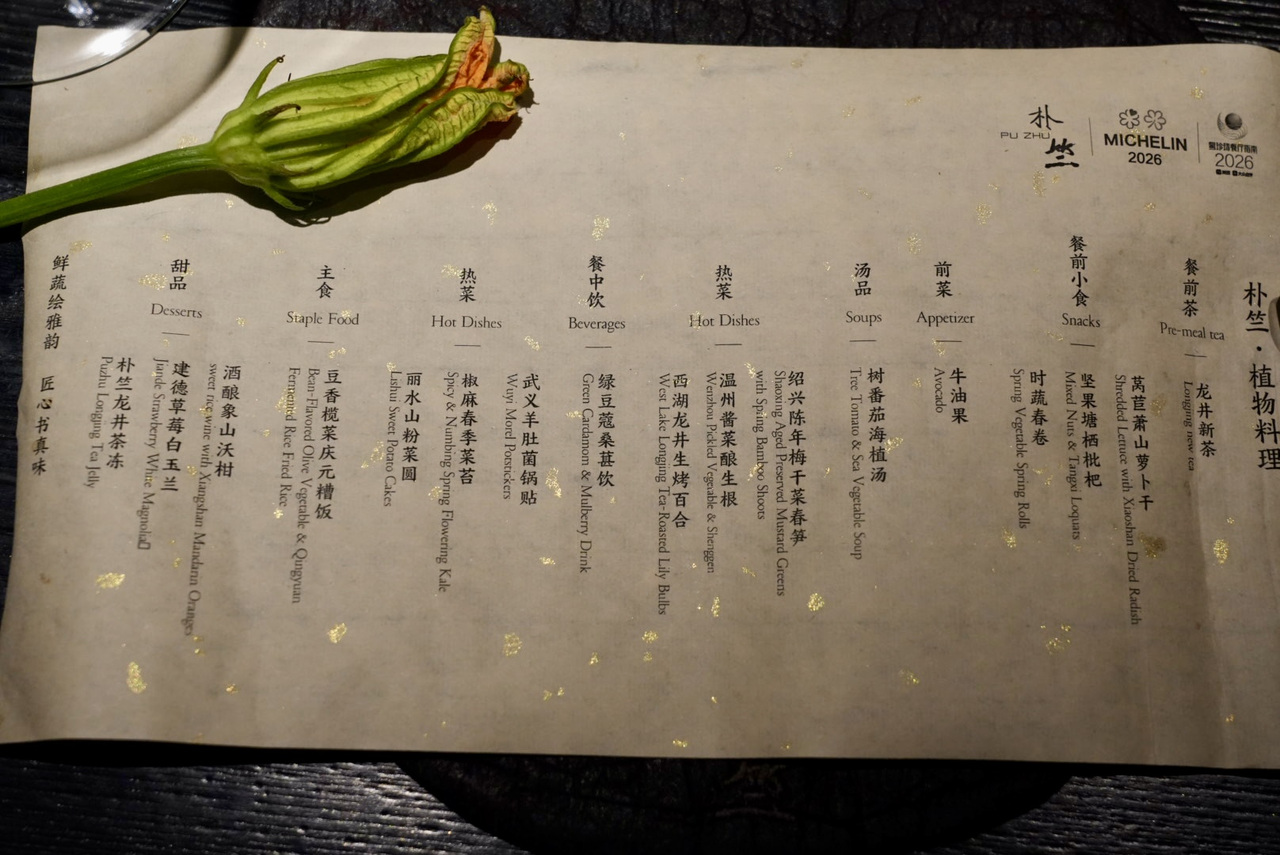 朴竺
PU ZHU
MICHELIN
2026
黑珍珠餐厅指南
2026
朴竺·植物料理
餐前茶
Pre-meal tea
龙井新茶
Longjing new tea
餐前小食
Snacks
莴苣萧山萝卜干
Shredded Lettuce with Xiaoshan Dried Radish
坚果塘栖枇杷
Mixed Nuts & Tangxi Loquats
时蔬春卷
Spring Vegetable Spring Rolls
前菜
Appetizer
牛油果
Avocado
汤品
Soups
树番茄海植汤
Tree Tomato & Sea Vegetable Soup
热菜
Hot Dishes
绍兴陈年梅干菜春笋
Shaoxing Aged Preserved Mustard Greens
with Spring Bamboo Shoots
温州酱菜酿生根
Wenzhou Pickled Vegetable & Shenggen
西湖龙井生烤百合
West Lake Longjing Tea-Roasted Lily Bulbs
餐中饮
Beverages
绿豆蔻桑葚饮
Green Cardamom & Mulberry Drink
热菜
Hot Dishes
武义羊肚菌锅贴
Wuyi Morel Potstickers
椒麻春季菜苔
Spicy & Numbing Spring Flowering Kale
丽水山粉菜圆
Lishui Sweet Potato Cakes
主食
Staple Food
豆香榄菜庆元糟饭
Bean-Flavored Olive Vegetable & Qingyuan
Fermented Rice Fried Rice
甜品
Desserts
酒酿象山沃柑
sweet rice wine with Xiangshan Mandarin Oranges
建德草莓白玉兰
Jiande Strawberry White Magnolia
朴竺龙井茶冻
Puzhu Longjing Tea Jelly
鲜蔬绘雅韵 匠心书真味